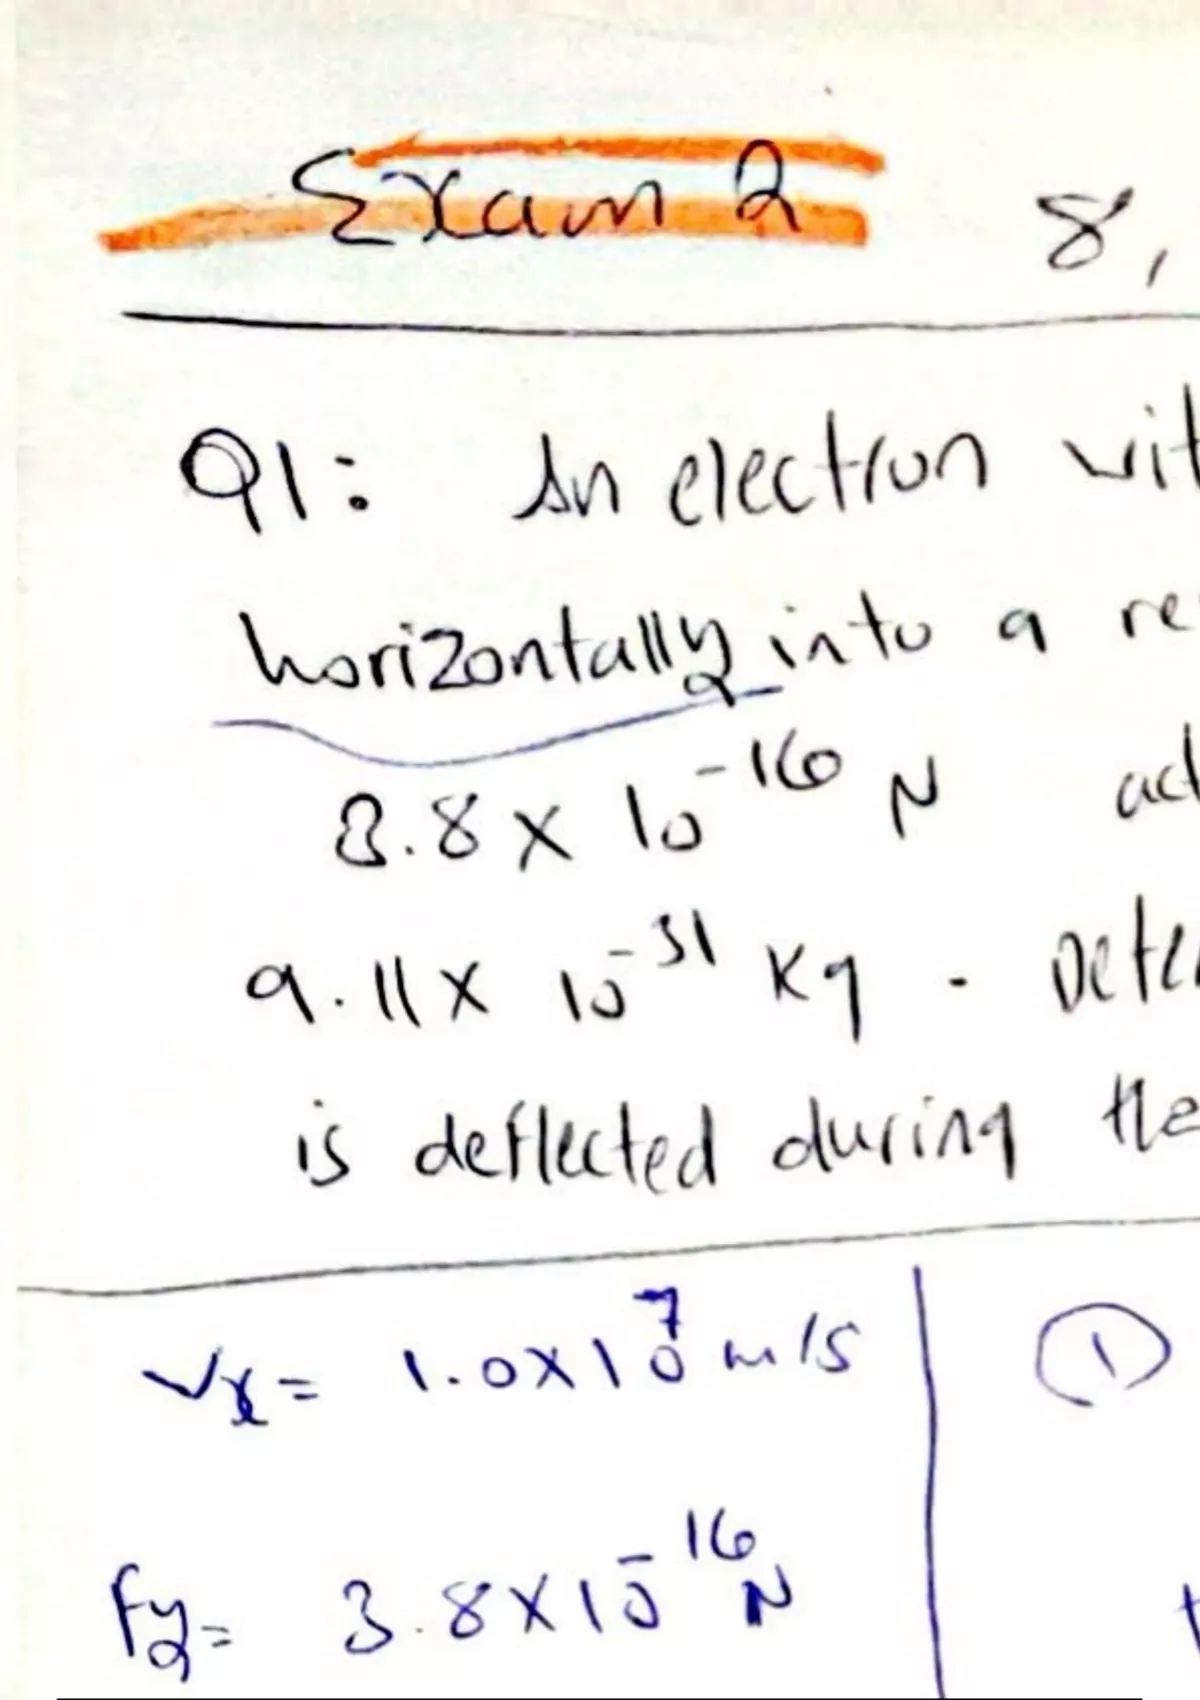 Exam 2 8,
Q1: An electron wit
horizontally into a re
3.8 x 10^-16 N act
9.11 x 10^-31 Kg . Dete
is deflected during the
Vx = 1.0 x 10^7 m/s 1
Fy = 3.8 x 10^-16 N